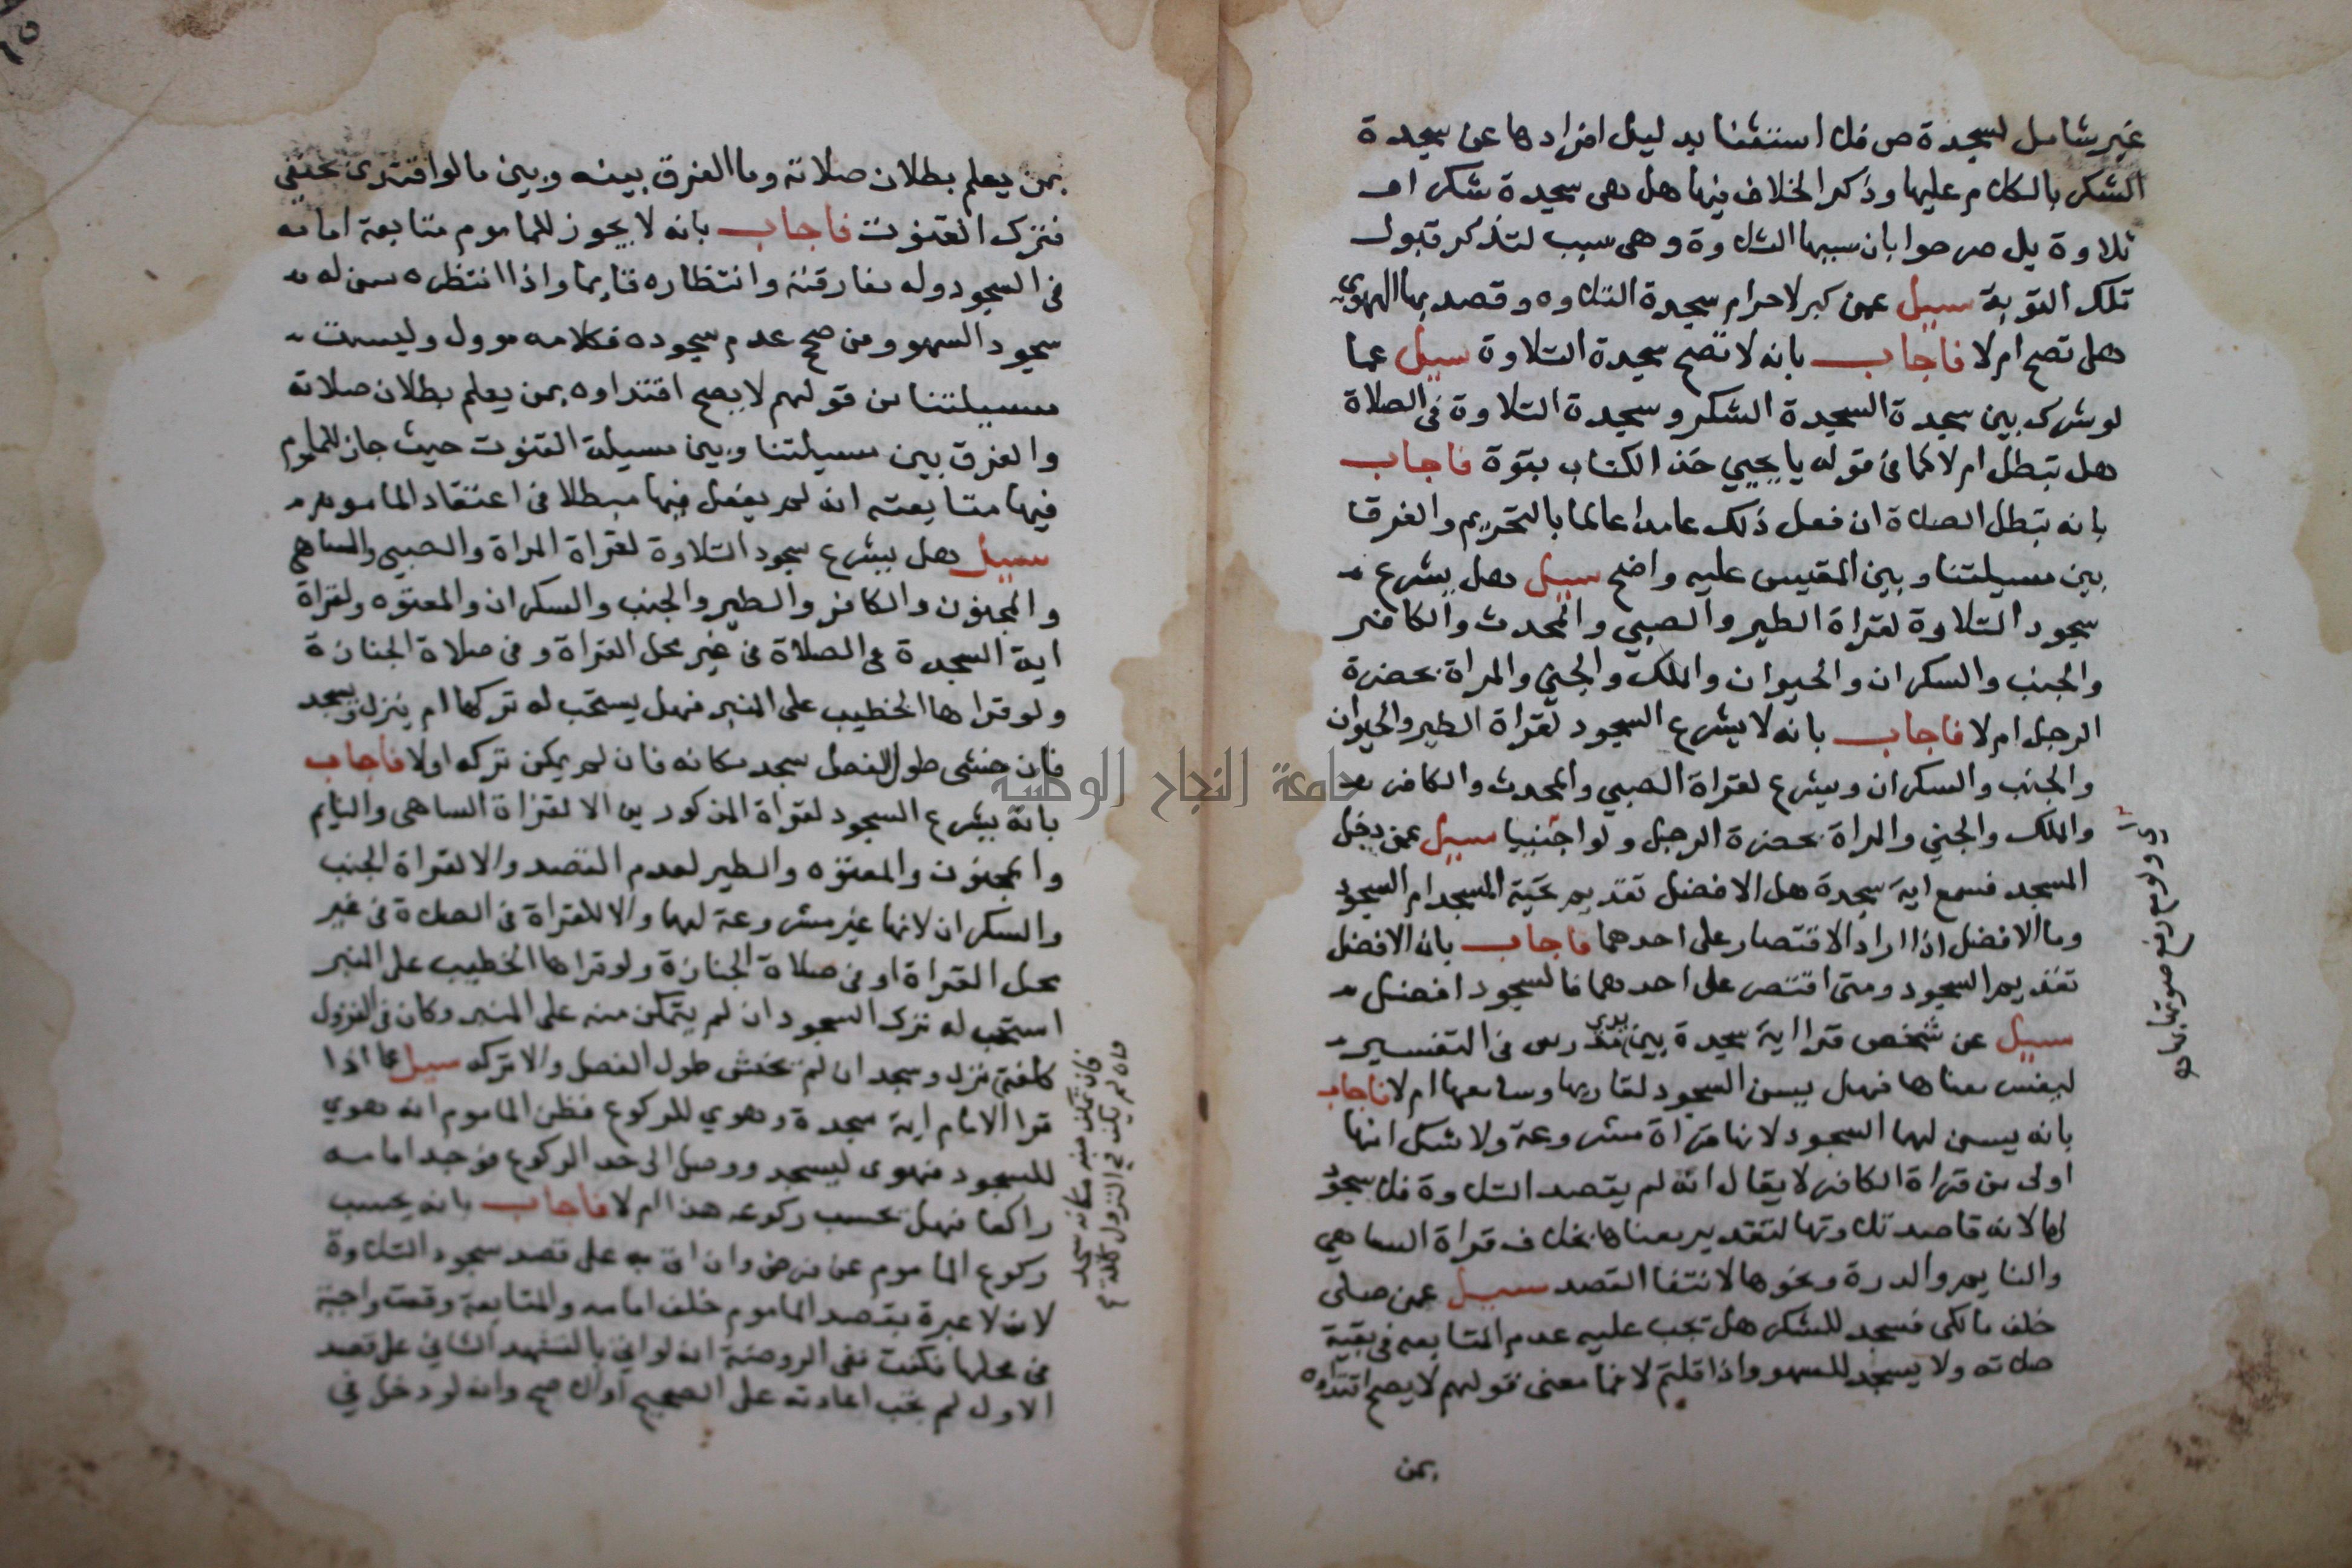 غير شامل لسجدة ص فلا استثنا بدليل افرادها عن سجدة
الشكر بالكلام عليها وذكر الخلاف فيها هل هي سجدة شكر او
تلاوة بل صرحوا بان سببها التلاوة وهي سبب لتذكر قبول
تلك التوبة سيل عمن كبر لاحرام سجدة التلاوه وقصد بها الهوي
هل تصح ام لا فاجاب بانه لا تصح سجدة التلاوة سيل عما
لو شرك بين سجدة السجدة الشكر وسجدة التلاوة في الصلاة
هل تبطل ام لا كما في قوله يا يحيي خذ الكتاب بقوة فاجاب
بانه تبطل الصلاة ان فعل ذلك عامدا عالما بالتحريم والفرق
بين مسيلتنا وبين المقيس عليه واضح سيل هل يشرع
سجود التلاوة لقراة الطير والصبي والمحدث والكافر
والجنب والسكران والحيوان والملك والجني والمراة بحضرة
الرجل ام لا فاجاب بانه لا يشرع السجود لقراة الطير والحيوان
والجنب والسكران ويشرع لقراة الصبي والمحدث والكافر
والملك والجني والمراة بحضرة الرجل ولو اجنبيا سيل عمن دخل
المسجد فسمع اية سجدة هل الافضل تقديم تحية المسجد ام السجود
وما الافضل اذا اراد الاقتصار على احدهما فاجاب بانه الافضل
تقديم السجود ومتى اقتصر على احدهما فالسجود افضل
سيل عن شخص قرا اية سجدة بين يدي مدرس في التفسير
ليفسر معناها فهل يسن السجود لقاريها وسامعها ام لا فاجاب
بانه يسن لهما السجود لانها قراة مشروعة ولا شك انها
اولى من قراة الكافر لا يقال انه لم يقصد التلاوة فلا سجود
لها لانه قاصد تلاوتها لتقدير معناها بخلاف قراة الساهي
والنايم والدرة ونحوها لانتفا القصد سيل عمن صلى
خلف مالكي فسجد للشكر هل تجب عليه عدم المتابعه في بقية
صلاته ولا يسجد للسهو واذا قلتم لا فما معنى قولهم لا يصح اقتداوه
بمن
ولو مع رفع صوتها به
بمن يعلم بطلان صلاته وما الفرق بينه وبين ما لو اقتدى بحنفي
فترك القنوت فاجاب بانه لا يجوز للماموم متابعة امامه
في السجود وله مفارقته وانتظاره قايما واذا انتظره سن له
سجود السهو ومن صحح عدم سجوده فكلامه موول وليست
مسيلتنا من قولهم لا يصح اقتداوه بمن يعلم بطلان صلاته
والفرق بين مسيلتنا وبين مسيلة القنوت حيث جاز للماموم
فيها متابعته انه لم يفعل فيها مبطلا في اعتقاد الماموم
سيل هل يشرع سجود التلاوة لقراة المراة والصبي والساهي
والمجنون والكافر والطير والجنب والسكران والمعتوه ولقراة
اية السجدة في الصلاة في غير محل القراة وفي صلاة الجنازة
ولو قراها الخطيب على المنبر فهل يستحب له تركها ام ينزل ويسجد
فان خشي طول الفصل سجد مكانه فان لم يمكن تركه اولا فاجاب
بانه يشرع السجود لقراة المذكورين الا لقراة الساهي والنايم
والمجنون والمعتوه والطير لعدم القصد والا لقراة الجنب
والسكران لانها غير مشروعة لهما والا للقراة في الصلاة في غير
محل القراة او في صلاة الجنازة ولو قراها الخطيب على المنبر
استحب له ترك السجود ان لم يتمكن منه على المنبر وكان في النزول
كلفة نزل وسجد ان لم يخش طول الفصل والا تركه سيل عما اذا
قرا الامام اية سجدة وهوي للركوع فظن الماموم انه هوي
للسجود فهوى ليسجد ووصل الى حد الركوع فوجد امامه
راكعا فهل يحسب ركوعه هذا ام لا فاجاب بانه يحسب
ركوع الماموم عن فرض وان اتى به على قصد سجود التلاوة
لان لا عبرة بقصد الماموم خلف امامه والمتابعة وقعت واجبة
في محلها فكفت ففي الروضة انه لو اتى بالتشهد الثاني على قصد
الاول لم يجب اعادته على الصحيح اولا صح وانه لو دخل في
فان تمكن منه مكانه سجد
فان لم يكن في النزول كلفة
جامعة النجاح الوطنية